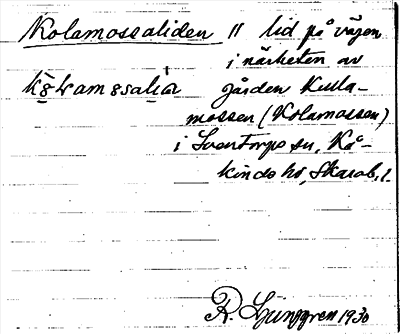 Kolamossaliden " lid på vägen
i närheten av
gården Kulla-
mossen (Kolamossen)
i Svartorps sn, Kå-
kinds hd, Skarab. l.
R. Ljunggren 1930